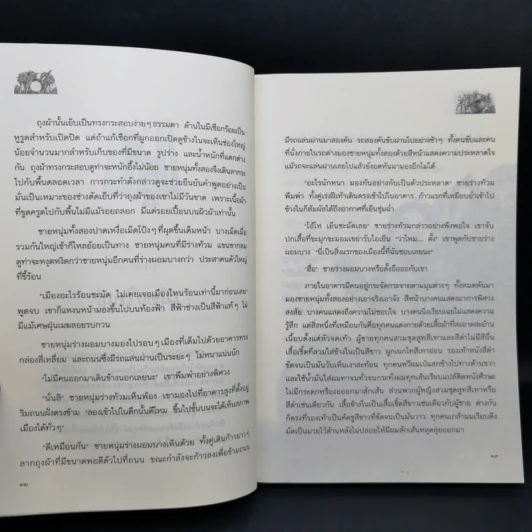 ถุงผ้านั้นเย็บเป็นทรงกระสอบง่ายๆ ธรรมดา ด้านในมีเชือกร้อยเป็น
หูรูดสำหรับเปิดปิด แต่ถ้าแก้เชือกที่ผูกออกเปิดดูข้างในจะเห็นช่องใหญ่
น้อยจำนวนมากสำหรับเก็บของที่มีขนาด รูปร่าง และน้ำหนักที่แตกต่าง
กัน ถุงผ้าทรงกระสอบดูท่าจะหนักอึ้งไม่น้อย ชายหนุ่มทั้งสองจึงเดินลากระ
ไปกับพื้นตลอดเวลา การกระทำดังกล่าวดูจะช่วยยืนยันคำพูดอย่างเป็น
มั่นเป็นเหมาะของช่างตัดเย็บที่ว่าถุงผ้าของเขาไม่มีวันขาด เพราะเนื้อผ้า
ที่ขูดครูดไปกับพื้นไม่มีแม้รอยถลอก มีแต่รอยเปื้อนบนผิวผ้าเท่านั้น
ชายหนุ่มทั้งสองปาดเหงื่อเม็ดโป้งๆ ที่ผุดขึ้นเต็มหน้า บางเม็ดเมื่อ
รวมกันใหญ่เข้าก็ไหลย้อยเป็นทาง ชายหนุ่มคนที่ร่างท้วม แขนขากลม
ดูท่าจะหงุดหงิดกว่าชายหนุ่มอีกคนที่ร่างผอมบางกว่า ประสาคนตัวใหญ่
ที่ขี้ร้อน
"เมืองอะไรร้อนชะมัด ไม่เคยเจอเมืองไหนร้อนเท่านี้มาก่อนเลย"
พูดจบ เขาก็แหงนหน้ามองขึ้นไปบนท้องฟ้า สีฟ้าช่างเป็นสีฟ้าแท้ๆ ไม่
มีแม้เศษฝุ่นเมฆลอยรบกวน
ชายหนุ่มร่างผอมบางมองไปรอบๆ เมืองที่เต็มไปด้วยอาคารทรง
กล่องสี่เหลี่ยม และถนนซึ่งมีรถแล่นผ่านเป็นระยะๆ ไม่หนาแน่นนัก
"ไม่มีคนออกมาเดินข้างนอกเลยนะ" เขาพึมพำอย่างพิศวง
"นั่นสิ" ชายหนุ่มร่างท้วมเห็นพ้อง เขามองไปที่อาคารสูงที่ตั้งอยู่
ริมถนนฝั่งตรงข้าม "ลองเข้าไปในตึกนั้นดีไหม ขึ้นไปชั้นบนจะได้เห็นสภาพ
เมืองได้ทั่วๆ"
"ดีเหมือนกัน" ชายหนุ่มร่างผอมบางเห็นด้วย ทั้งคู่เดินก้าวยาวๆ
ลากถุงผ้าที่มีขนาดพอดีตัวไปที่ถนน ขณะกำลังจะก้าวลงเพื่อข้ามถนน
๑๒
มีรถแล่นผ่านมาสองคัน รถสองคันขับผ่านไปอย่างช้าๆ ทั้งคนขับและคน
ที่นั่งภายในรถต่างมองชายหนุ่มทั้งสองด้วยสีหน้าแสดงความประหลาดใจ
แม้รถจะแล่นผ่านเลยไปแล้วยังอดหันมามองอีกไม่ได้
"อะไรนักหนา มองกันอย่างกับเป็นตัวประหลาด" ชายร่างท้วม
พึมพำ ทั้งคู่เร่งฝีเท้าเดินตรงเข้าไปในอาคาร ก้าวแรกที่เหยียบย่ำเข้าไป
ข้างในก็สัมผัสได้ถึงอากาศที่เย็นชุ่มฉ่ำ
"โอ้โห เย็นชะมัดเลย" ชายร่างท้วมกล่าวอย่างพึงพอใจ เขาจับ
ปกเสื้อที่ชะมุกชะมอมเขย่ารับไอเย็น "ว่าไหม... ดั้ง" เขาพูดกับชายร่าง
ผอมบาง "นี่เป็นสิ่งแรกของเมืองนี้ที่ฉันชอบเลยนะ"
"ฮื่อ" ชายร่างผอมบางหรือดั้งยิ้มออกรับเขา
ภายในอาคารมีคนอยู่กระจัดกระจายตามมุมต่างๆ ทั้งหมดหันมา
มองชายหนุ่มทั้งสองอย่างเอาจริงเอาจัง สีหน้าบางคนแสดงอาการพิศวง
สงสัย บางคนแสดงถึงความไม่ชอบใจ บางคนนิ่งเรียบเฉยไม่แสดงความ
รู้สึก แต่สิ่งหนึ่งที่เหมือนกันคือทุกคนแต่งกายด้วยเสื้อผ้าที่สะอาดสะอ้าน
เนี้ยบตั้งแต่หัวจรดเท้า ผู้ชายทุกคนสวมชุดสูทสีเทาและสีดำไม่มีสีอื่น
เสื้อเชิ้ตที่สวมใส่ข้างในเป็นสีขาว ผูกเนกไทสีเทาอ่อน รองเท้าหนังสีดำ
ขัดจนเป็นมันวับเห็นเงาสะท้อน ทุกคนหวีผมเป็นแสกข้างไปทางด้านขวา
และใช้น้ำมันใส่ผมทาจนทั่วจนกระทั่งผมทุกเส้นเรียบแปล้ติดหนังศีรษะ
ไม่มีกระดกหรืองอกออกมาสักเส้น ส่วนพวกผู้หญิงสวมชุดสูทสีเทาหรือ
สีดำเช่นเดียวกัน เสื้อข้างในเป็นเสื้อเชิ้ตสีขาวเช่นเดียวกับผู้ชาย ต่างกัน
ก็ตรงที่รองเท้าเป็นคัตชูสีขาวที่ขัดจนเป็นมันวาว ทุกคนเกล้าผมเรียบตึง
มัดเป็นมวยไว้ด้านหลังไม่ปล่อยให้มีผมสักเส้นหลุดลุ่ยออกมา
๑๓